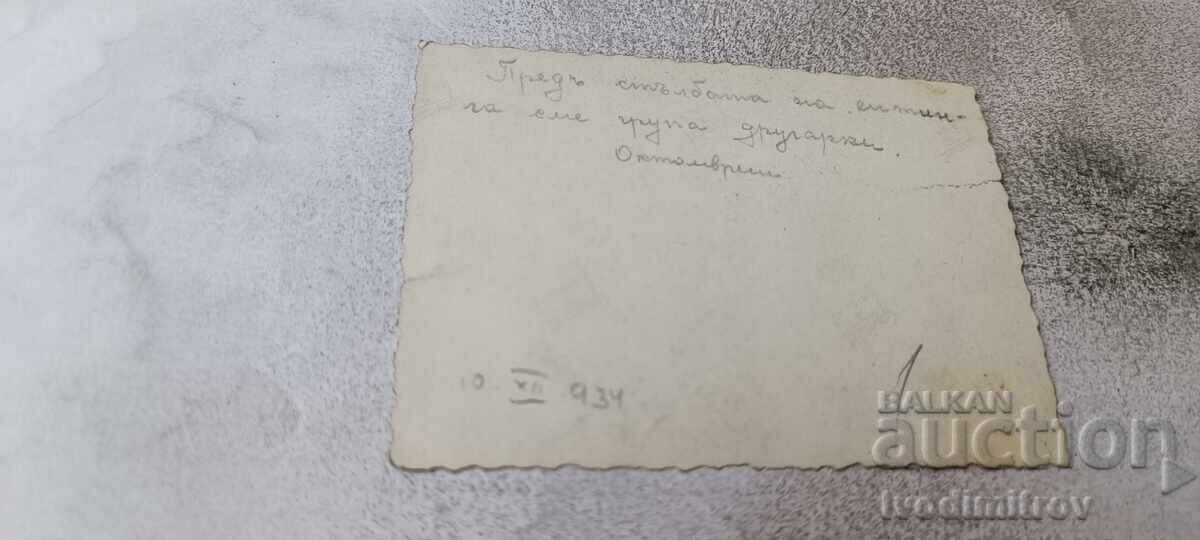 Предъ стълбата на
га сме група другарки.
Октомврий
10. XII 934
BALKAN
auction
Ivodimitrov